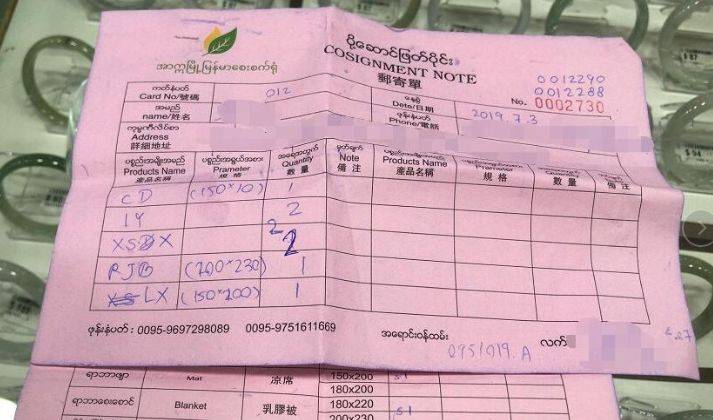 ပို့ဆောင်ဖြတ်ပိုင်း
CONSIGNMENT NOTE
郵寄單
0012290
0012288
No. 0002730
ကတ်နံပတ်
Card No/號碼 012
နေ့စွဲ
Date/日期 2019.7.3
အမည်
name/姓名
ဖုန်းနံပတ်
Phone/電話
Address
詳細地址
ပစ္စည်းအမျိုးအမည် ပစ္စည်အရွယ်အစား အရေအတွက် မှတ်ချက်
Products Name Prameter Quantity Note Products Name Prameter Quantity
產品名稱 規 格 數 量 備 注 產品名稱 規 格 數 量 備 注
CD (150*10) 1
1Y 2
XSDX 2 2
RJG (200*230) 1
LX (150*200) 1
ဖုန်းနံပတ် : 0095-9697298089 0095-9751611669
အရောင်းဝန်ထမ်း 095/019.A လက်
Mat 凉席 150x200 S1
180x200
Blanket 乳膠被 180x220 S1
200x230